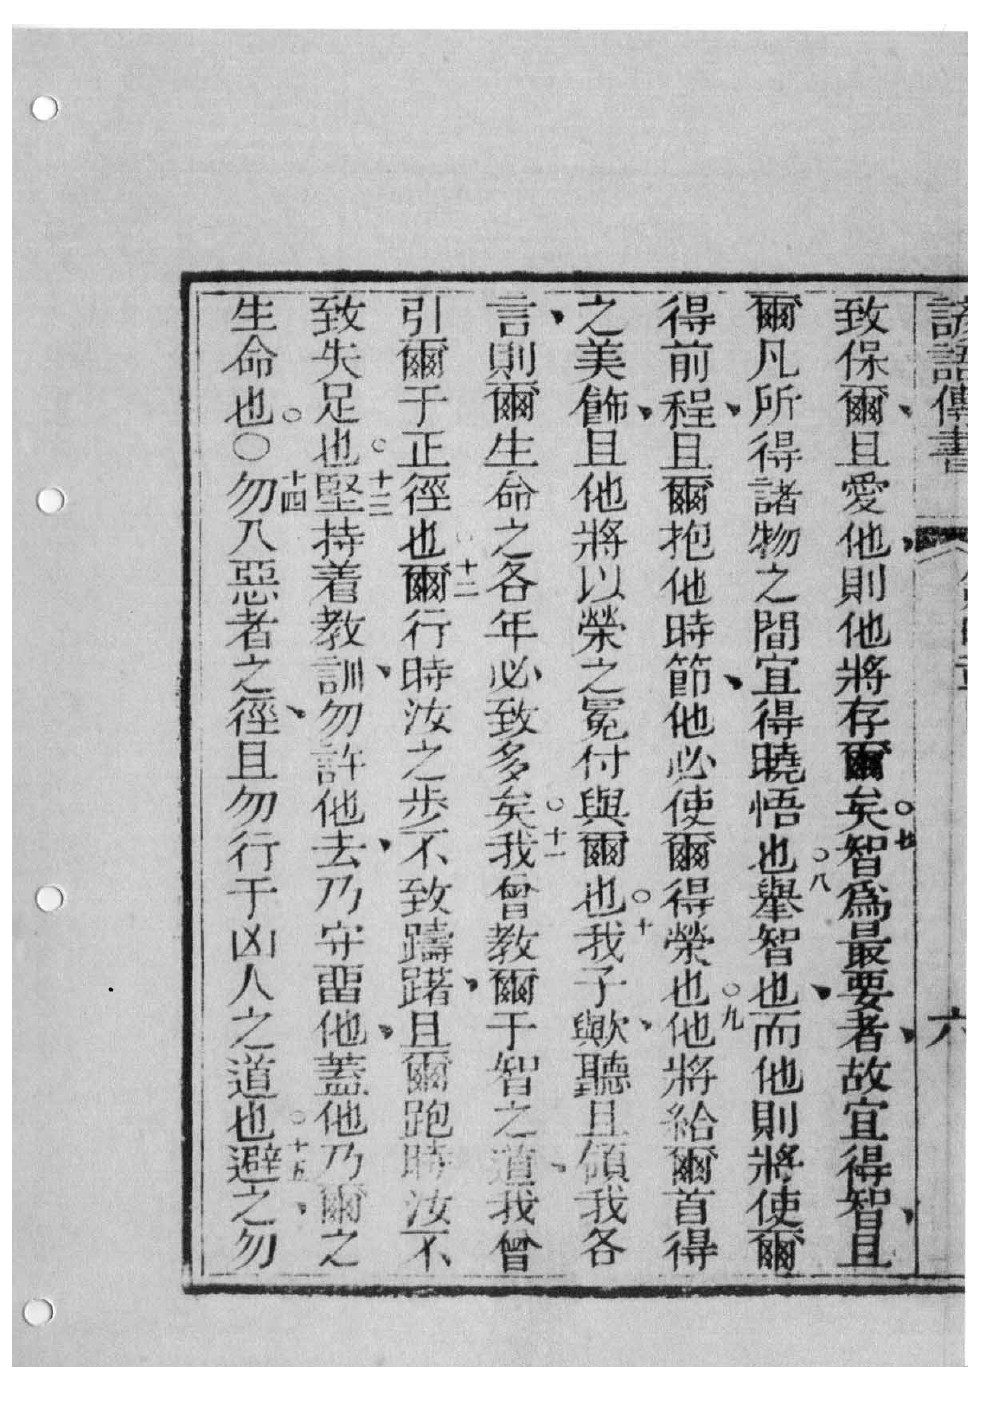 諺語傳書 六
致保爾、且愛他、則他將存爾矣。七智爲最要者、故宜得智、且
爾凡所得諸物之間宜得曉悟也。八舉智也、而他則將使爾
得前程、且爾抱他時節、他必使爾得榮也。九他將給爾首得
之美飾、且他將以榮之冕付與爾也。十我子歟、聽且領我各
言、則爾生命之各年必致多矣。十一我曾教爾于智之道、我曾
引爾于正徑也。十二爾行時汝之步不致躊躇、且爾跑時汝不
致失足也。十三堅持着教訓、勿許他去、乃守畱他、蓋他乃爾之
生命也。〇十四勿入惡者之徑、且勿行于凶人之道也。十五避之、勿